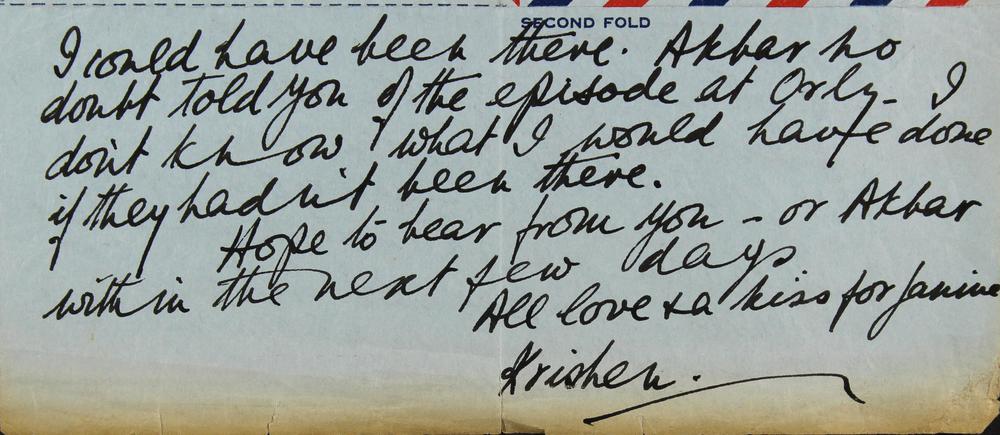 SECOND FOLD
I could have been there. Akbar no
doubt told you of the episode at Orly - I
don't know what I would have done
if they hadn't been there.
Hope to hear from you - or Akbar
within the next few days
All love & a kiss for Janine
Krishen.